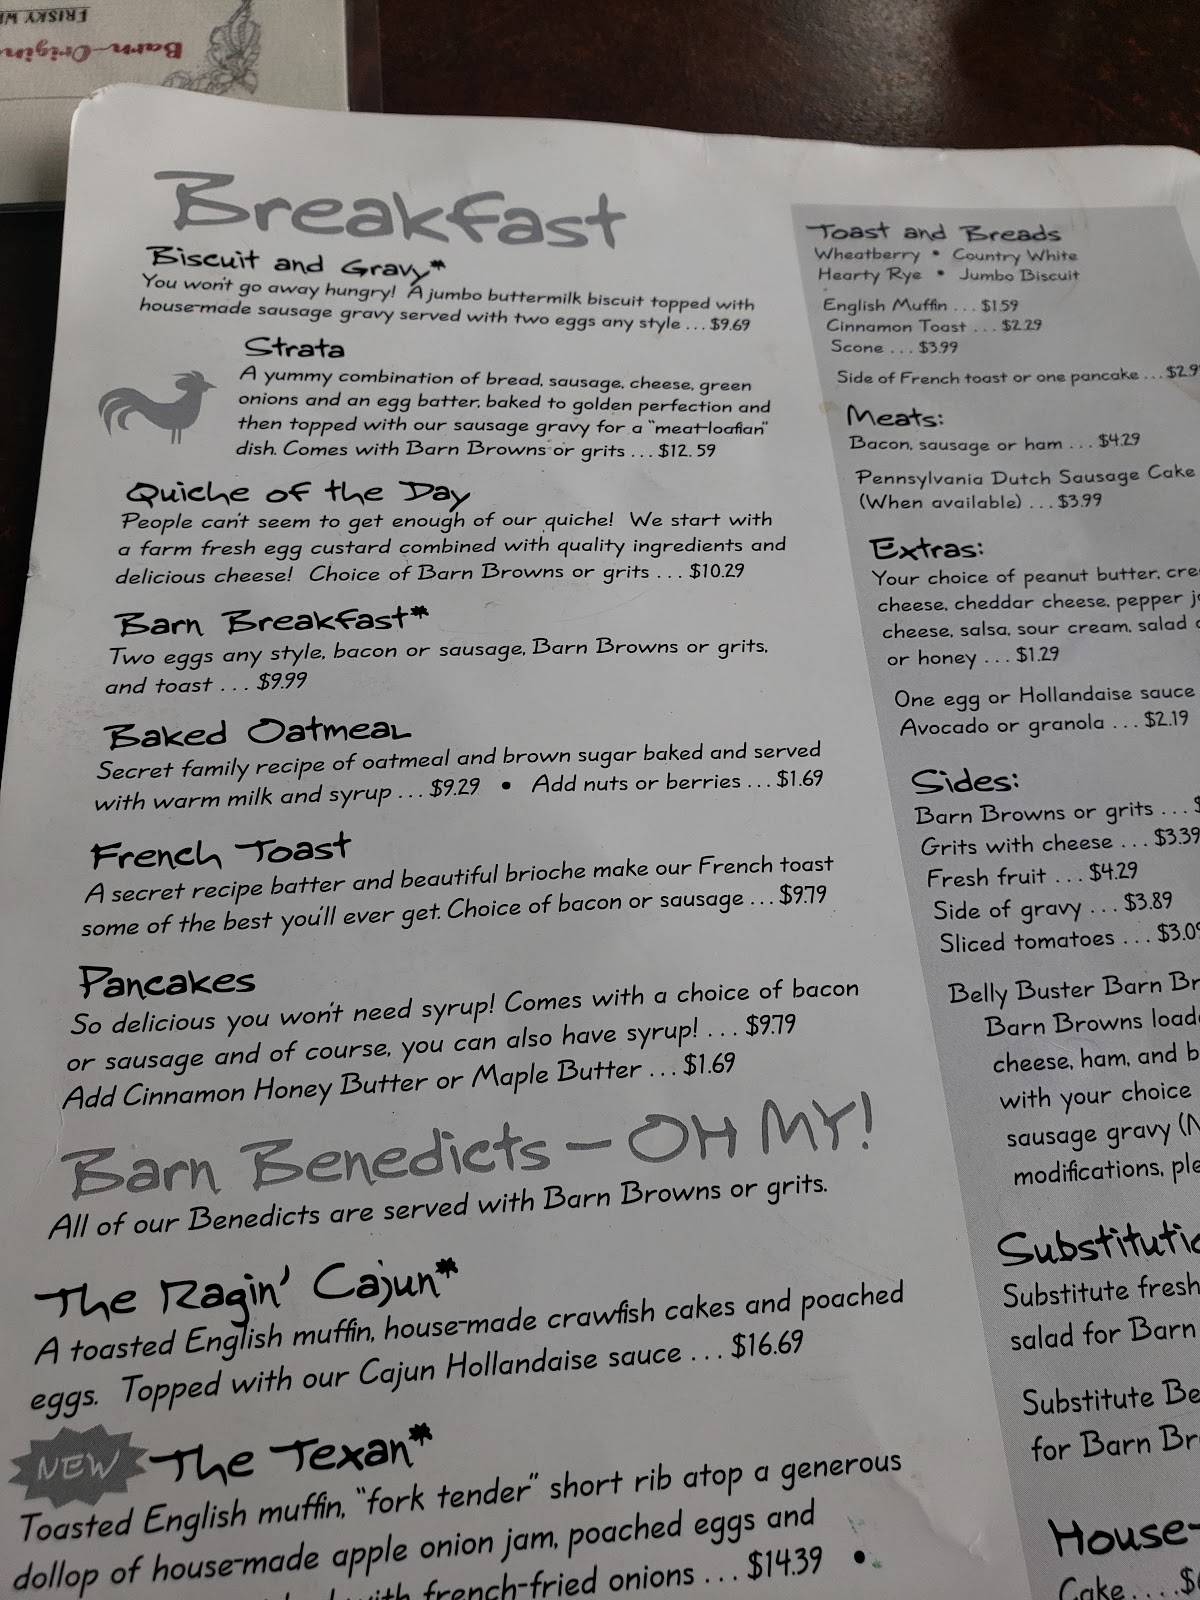 Barn-Origin
Breakfast
Biscuit and Gravy*
You won't go away hungry! A jumbo buttermilk biscuit topped with
house-made sausage gravy served with two eggs any style ... $9.69
Strata
A yummy combination of bread, sausage, cheese, green
onions and an egg batter, baked to golden perfection and
then topped with our sausage gravy for a "meat-loafian"
dish. Comes with Barn Browns or grits ... $12.59
Quiche of the Day
People can't seem to get enough of our quiche! We start with
a farm fresh egg custard combined with quality ingredients and
delicious cheese! Choice of Barn Browns or grits ... $10.29
Barn Breakfast*
Two eggs any style, bacon or sausage, Barn Browns or grits,
and toast ... $9.99
Baked Oatmeal
Secret family recipe of oatmeal and brown sugar baked and served
with warm milk and syrup ... $9.29 • Add nuts or berries ... $1.69
French Toast
A secret recipe batter and beautiful brioche make our French toast
some of the best you'll ever get. Choice of bacon or sausage ... $9.79
Pancakes
So delicious you won't need syrup! Comes with a choice of bacon
or sausage and of course, you can also have syrup! ... $9.79
Add Cinnamon Honey Butter or Maple Butter ... $1.69
Barn Benedicts – OH MY!
All of our Benedicts are served with Barn Browns or grits.
The Ragin' Cajun*
A toasted English muffin, house-made crawfish cakes and poached
eggs. Topped with our Cajun Hollandaise sauce ... $16.69
NEW The Texan*
Toasted English muffin, "fork tender" short rib atop a generous
dollop of house-made apple onion jam, poached eggs and
with french-fried onions ... $14.39 •
Toast and Breads
Wheatberry • Country White
Hearty Rye • Jumbo Biscuit
English Muffin ... $1.59
Cinnamon Toast ... $2.29
Scone ... $3.99
Side of French toast or one pancake ... $2.9
Meats:
Bacon, sausage or ham ... $4.29
Pennsylvania Dutch Sausage Cake
(When available) ... $3.99
Extras:
Your choice of peanut butter, cre
cheese, cheddar cheese, pepper j
cheese, salsa, sour cream, salad
or honey ... $1.29
One egg or Hollandaise sauce
Avocado or granola ... $2.19
Sides:
Barn Browns or grits ... $
Grits with cheese ... $3.39
Fresh fruit ... $4.29
Side of gravy ... $3.89
Sliced tomatoes ... $3.09
Belly Buster Barn Br
Barn Browns load
cheese, ham, and b
with your choice
sausage gravy (N
modifications, ple
Substitutio
Substitute fresh
salad for Barn
Substitute Be
for Barn Br
House-
Cake....$